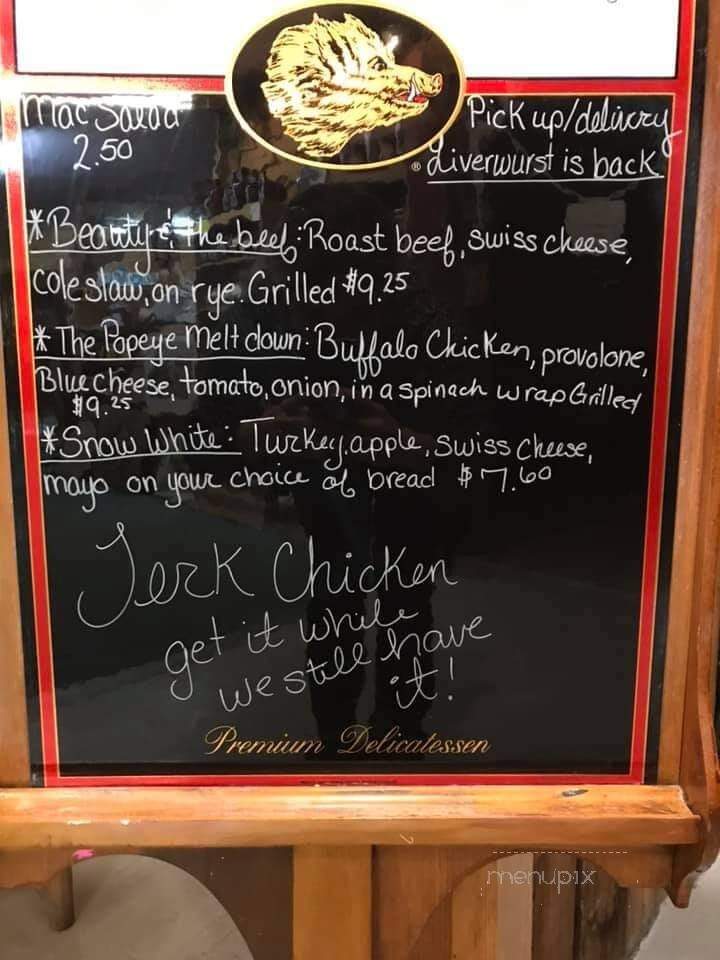 Mac Salad
2.50
Pick up/delivery
® Liverwurst is back
* Beauty & the beef: Roast beef, swiss cheese,
Coleslaw, on rye. Grilled $9.25
* The Popeye Melt down: Buffalo Chicken, provolone,
Blue cheese, tomato, onion, in a spinach wrap Grilled
$9.25
* Snow White: Turkey, apple, swiss cheese,
mayo on your choice of bread $7.60
Jerk Chicken
get it while
we still have
it!
Premium Delicatessen
menupix